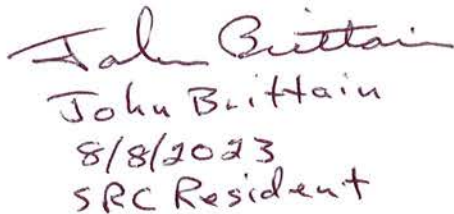 John Brittain
John Brittain
8/8/2023
SRC Resident